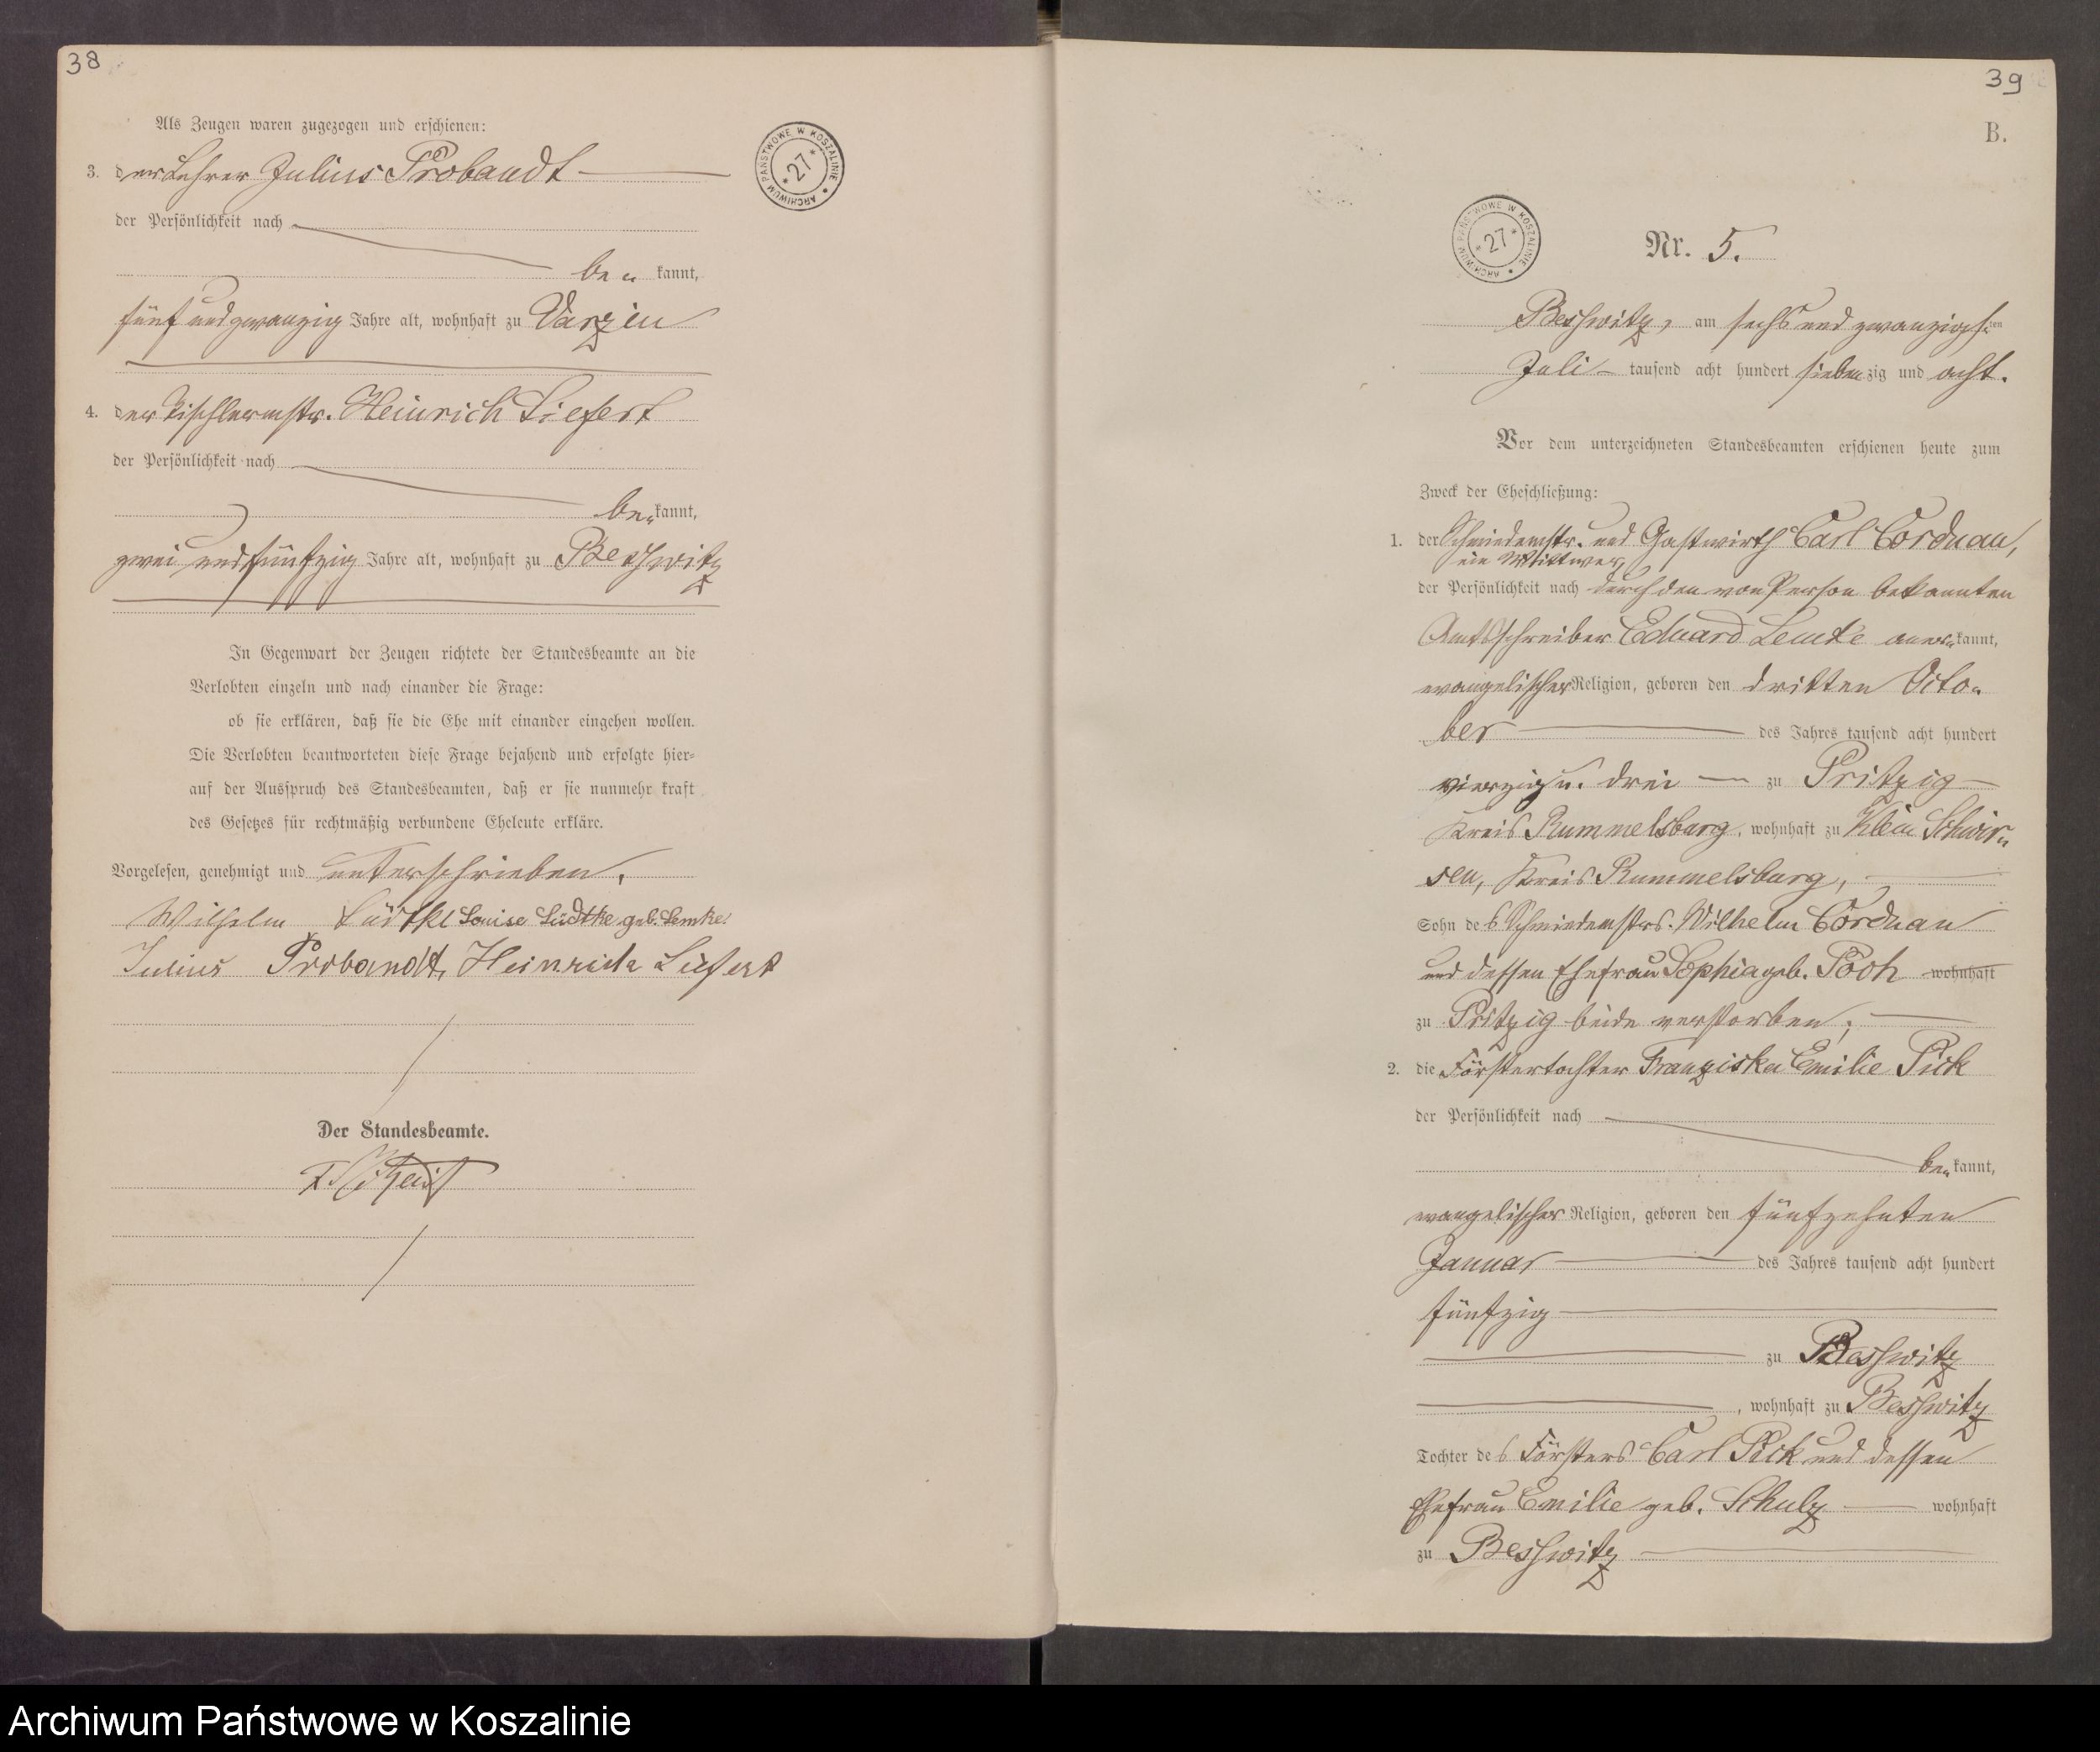 38
Als Zeugen waren zugezogen und erschienen:
3. der Lehrer Julius Probandt
der Persönlichkeit nach
be= kannt,
fünf und zwanzig Jahre alt, wohnhaft zu Varzin
4. der Tischlermstr. Heinrich Liefert
der Persönlichkeit nach
be= kannt,
zwei und fünfzig Jahre alt, wohnhaft zu Beßwitz
In Gegenwart der Zeugen richtete der Standesbeamte an die
Verlobten einzeln und nach einander die Frage:
ob sie erklären, daß sie die Ehe mit einander eingehen wollen.
Die Verlobten beantworteten diese Frage bejahend und erfolgte hier=
auf der Ausspruch des Standesbeamten, daß er sie nunmehr kraft
des Gesetzes für rechtmäßig verbundene Eheleute erkläre.
Vorgelesen, genehmigt und unterschrieben.
Wilhelm Lüdtke Louise Lüdtke geb. Lemke.
Julius Probandt, Heinrich Liefert
Der Standesbeamte.
ARCHIWUM PAŃSTWOWE W KOSZALINIE * 27 *
39
B.
ARCHIWUM PAŃSTWOWE W KOSZALINIE * 27 *
Nr. 5.
Beßwitz, am sechs und zwanzigsten
Juli tausend acht hundert siebenzig und acht.
Vor dem unterzeichneten Standesbeamten erschienen heute zum
Zweck der Eheschließung:
1. der Schmiedemstr. und Gastwirth Carl Corduan,
ein Wittwer,
der Persönlichkeit nach durch den von Person bekannten
Amtsschreiber Eduard Lemke aner= kannt,
evangelischer Religion, geboren den dritten Octo=
ber des Jahres tausend acht hundert
vierzig u. drei zu Pritzig
Kreis Rummelsburg, wohnhaft zu Klein Schwir=
sen, Kreis Rummelsburg,
Sohn des Schmiedemstrs. Wilhelm Corduan
und dessen Ehefrau Sophia geb. Poch wohnhaft
zu Pritzig beide verstorben;
2. die Förstertochter Franziska Emilie Pick
der Persönlichkeit nach
be= kannt,
evangelischer Religion, geboren den fünfzehnten
Januar des Jahres tausend acht hundert
fünfzig
zu Beßwitz
, wohnhaft zu Beßwitz
Tochter des Försters Carl Pick und dessen
Ehefrau Emilie geb. Schulz wohnhaft
zu Beßwitz
Archiwum Państwowe w Koszalinie